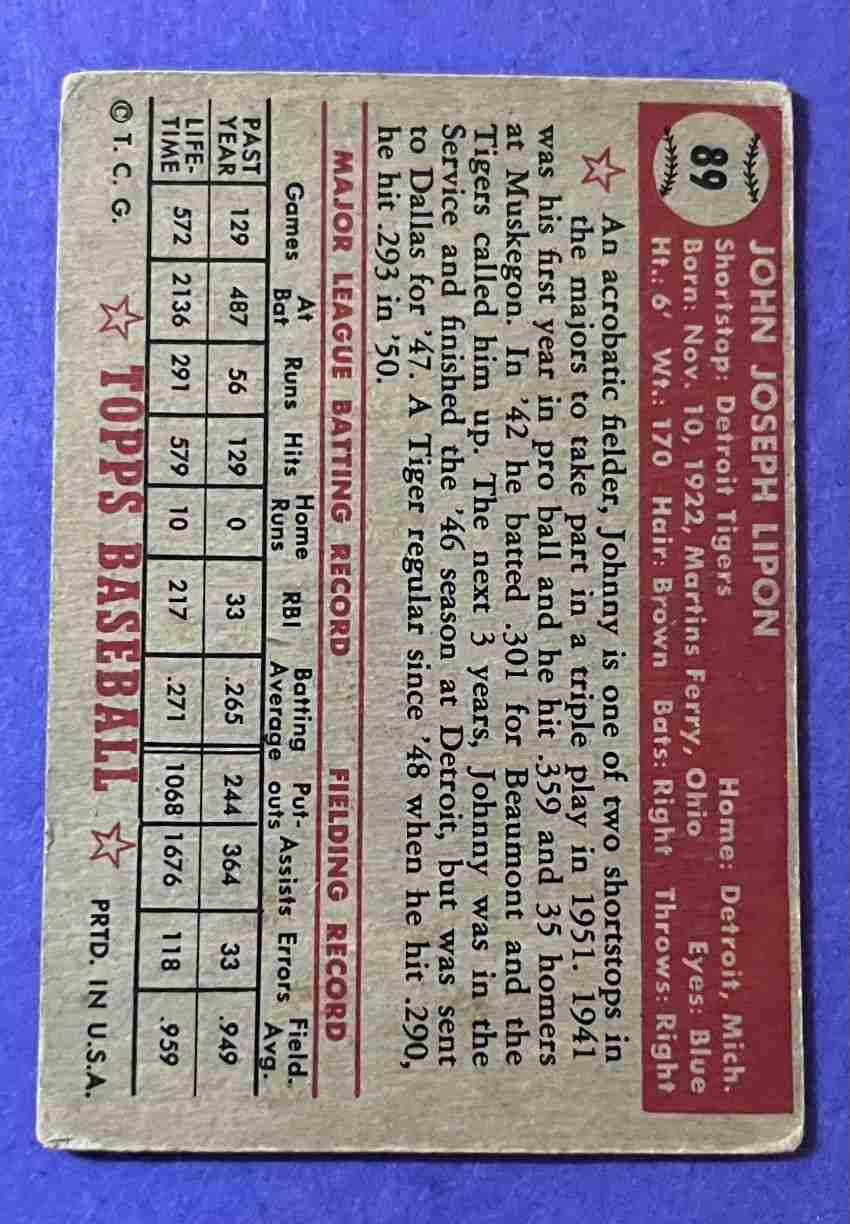 89
JOHN JOSEPH LIPON
Shortstop: Detroit Tigers Home: Detroit, Mich.
Born: Nov. 10, 1922, Martins Ferry, Ohio Eyes: Blue
Ht.: 6' Wt.: 170 Hair: Brown Bats: Right Throws: Right
An acrobatic fielder, Johnny is one of two shortstops in
the majors to take part in a triple play in 1951. 1941
was his first year in pro ball and he hit .359 and 35 homers
at Muskegon. In '42 he batted .301 for Beaumont and the
Tigers called him up. The next 3 years, Johnny was in the
Service and finished the '46 season at Detroit, but was sent
to Dallas for '47. A Tiger regular since '48 when he hit .290,
he hit .293 in '50.
MAJOR LEAGUE BATTING RECORD FIELDING RECORD
Games At Bat Runs Hits Home Runs RBI Batting Average Put-outs Assists Errors Field. Avg.
PAST YEAR 129 487 56 129 0 33 .265 244 364 33 .949
LIFE-TIME 572 2136 291 579 10 217 .271 1068 1676 118 .959
© T. C. G. TOPPS BASEBALL PRTD. IN U.S.A.